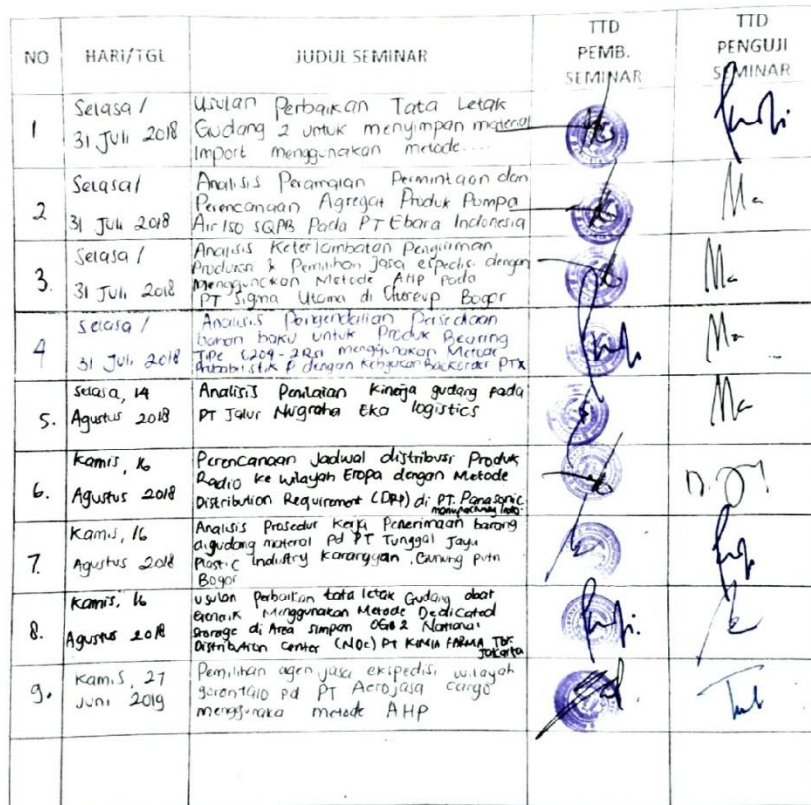 NO HARI/TGL JUDUL SEMINAR TTD PEMB. SEMINAR TTD PENGUJI SEMINAR
1 Selasa / 31 Juli 2018
Usulan Perbaikan Tata Letak
Gudang 2 untuk menyimpan material
Import menggunakan metode....
2 Selasa / 31 Juli 2018
Analisis Peramalan Permintaan dan
Perencanaan Agregat Produk Pompa
Air Iso SQPB Pada PT Ebara Indonesia
3. Selasa / 31 Juli 2018
Analisis Keterlambatan Pengiriman
& Pemilihan Jasa espedisi dengan
Menggunakan Metode AHP pada
PT Sigma Utama di Bogor
4 Selasa / 31 Juli 2018
Analisis Pengendalian Persediaan
bahan baku untuk Produk Bearing
Tipe 6204-2RSI menggunakan Metode
Probabilistik P dengan Kebijakan Backorder PTX
5. Selasa, 14 Agustus 2018
Analisis Penilaian Kinerja gudang pada
PT Jalur Nugraha Eka logistics
6. Kamis, 16 Agustus 2018
Perencanaan Jadwal distribusi Produk
Radio ke wilayah Eropa dengan Metode
Distribution Requirement (DRP) di PT. Panasonic
manufacturing Indo.
7. Kamis, 16 Agustus 2018
Analisis Prosedur Kerja Penerimaan barang
digudang material pd PT Tunggal Jaya
Plastic Industry Karanggan, Gunung Putri
Bogor
8. Kamis, 16 Agustus 2018
Usulan Perbaikan tata letak Gudang obat
Menggunakan Metode Dedicated
Storage di Area simpan OGB 2 National
Distribution Center (NDC) PT KIMIA FARMA Tbk.
Jakarta
9. Kamis, 27 Juni 2019
Pemilihan agen jasa ekspedisi wilayah
gorontalo pd PT Aerojasa cargo
menggunaka metode AHP